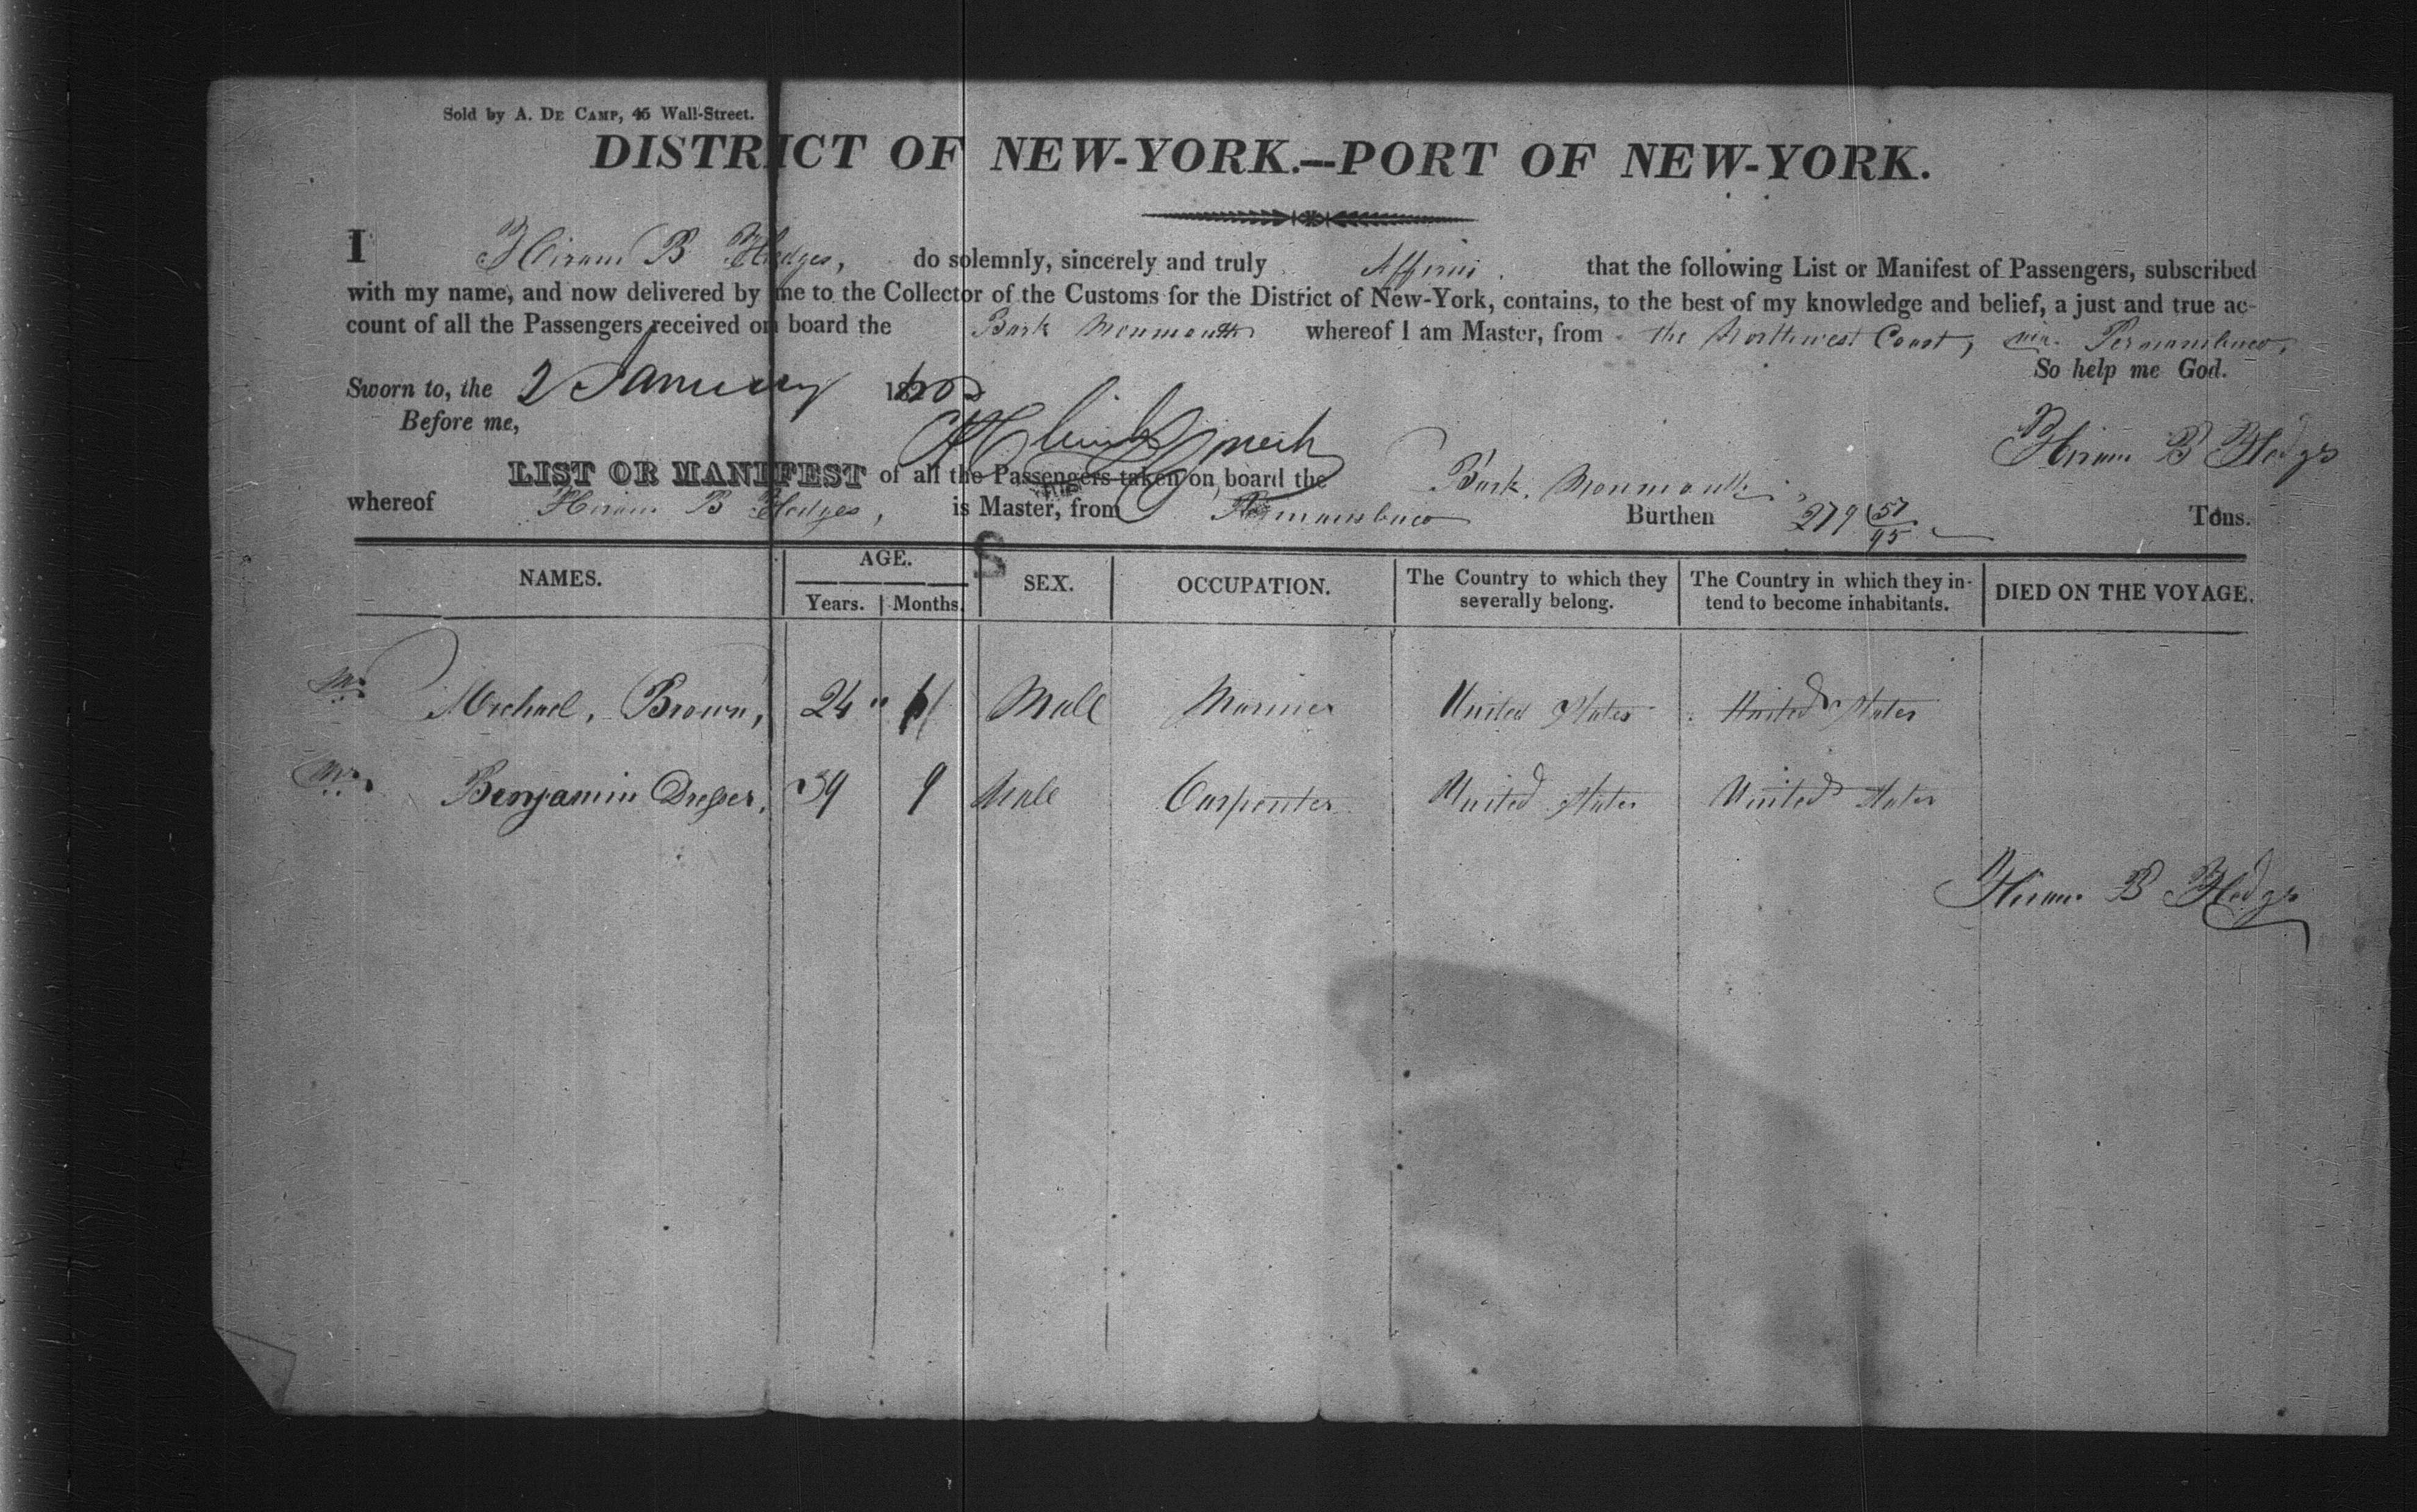 Sold by A. DE CAMP, 45 Wall-Street.
DISTRICT OF NEW-YORK.—PORT OF NEW-YORK.
I Hiram B Hedges, do solemnly, sincerely and truly Affirm. that the following List or Manifest of Passengers, subscribed
with my name, and now delivered by me to the Collector of the Customs for the District of New-York, contains, to the best of my knowledge and belief, a just and true ac-
count of all the Passengers received on board the Bark Monmouth whereof I am Master, from the Northwest Coast, via. Pernambuco,
So help me God.
Sworn to, the 2 January
Before me,
Hiram B Hedges
LIST OR MANIFEST of all the Passengers taken on board the Bark, Monmouth
whereof Hiram B Hedges, is Master, from Pernambuco Burthen 279 57/95 Tons.
NAMES. AGE. SEX. OCCUPATION. The Country to which they severally belong. The Country in which they in-tend to become inhabitants. DIED ON THE VOYAGE.
Years. Months.
Mr Michael, Brown, 24 " Male Mariner United States United States
Mr Benjamin Dresser, 39 9 Male Carpenter United States United States
Hiram B Hedges